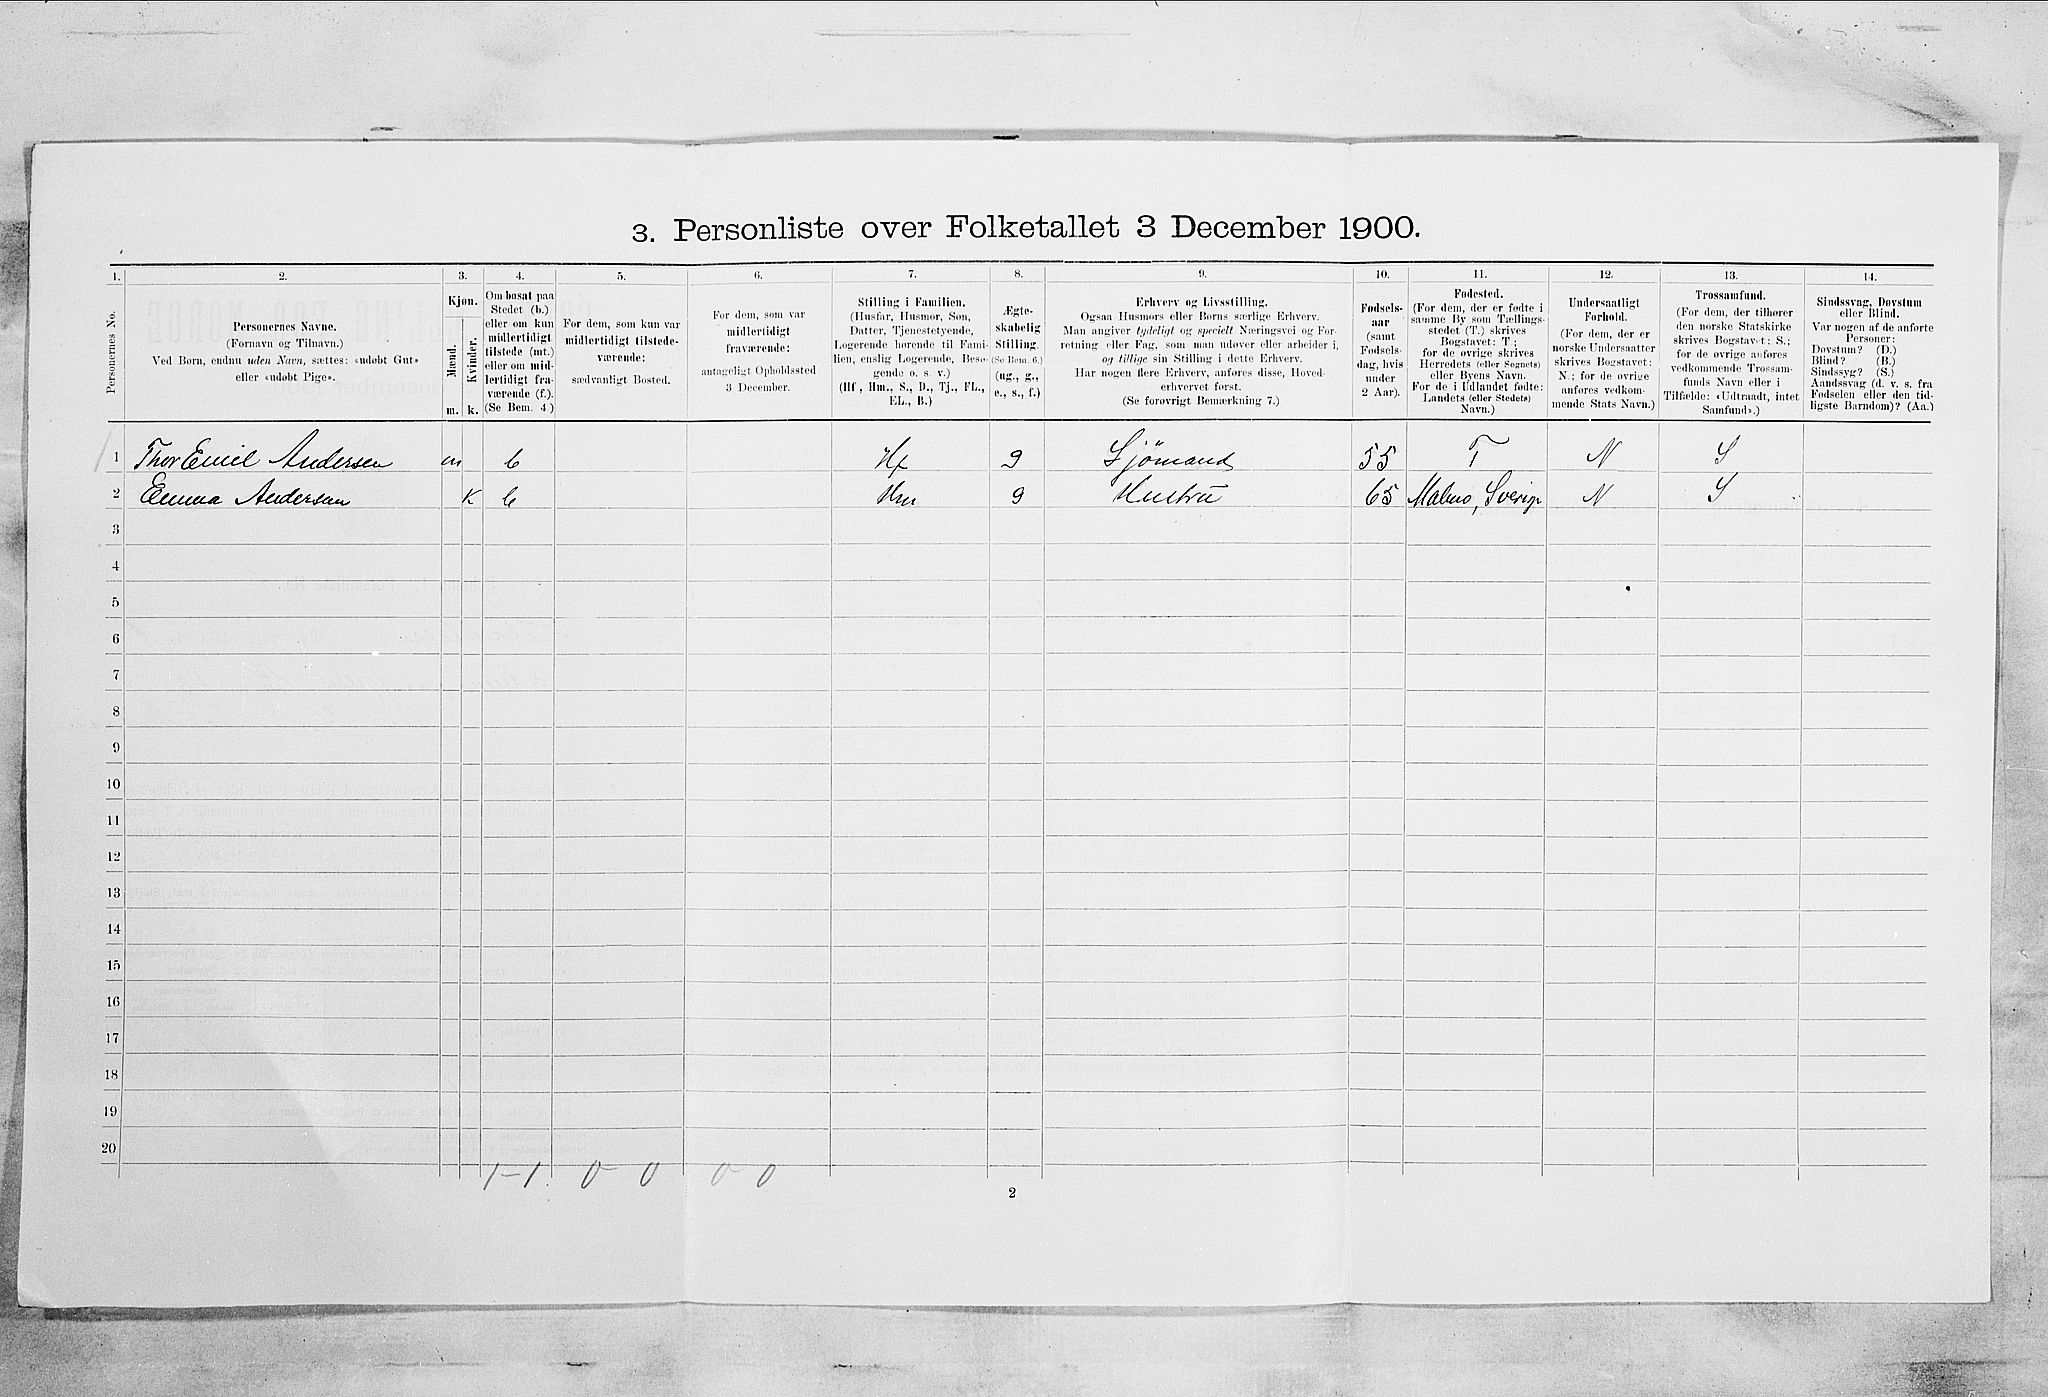 3. Personliste over Folketallet 3 December 1900.
1. 2. 3. 4. 5. 6. 7. 8. 9. 10. 11. 12. 13. 14.
Personernes No.
Personernes Navne.
(Fornavn og Tilnavn.)
Ved Børn, endnu uden Navn, sættes: «udøbt Gut»
eller «udøbt Pige».
Kjøn.
Mænd.
Kvinder.
m. k.
Om bosat paa
Stedet (b.)
eller om kun
midlertidigt
tilstede (mt.)
eller om mid-
lertidigt fra-
værende (f.).
(Se Bem. 4)
For dem, som kun var
midlertidigt tilstede-
værende:
sædvanligt Bosted.
For dem, som var
midlertidigt
fraværende:
antageligt Opholdssted
3 December.
Stilling i Familien.
(Husfar, Husmor, Søn,
Datter, Tjenestetyende,
Logerende hørende til Fami-
lien, enslig Logerende, Besø-
gende o. s. v.)
(Hf., Hm., S., D., Tj., FL.,
EL., B.)
Ægte-
skabelig
Stilling.
(Se Bem. 6.)
(ug., g.,
e., s., f.)
Erhverv og Livsstilling.
Ogsaa Husmors eller Børns særlige Erhverv.
Man angiver tydeligt og specielt Næringsvei og For-
retning eller Fag, som man udøver eller arbeider i,
og tillige sin Stilling i dette Erhverv.
Har nogen flere Erhverv, anføres disse, Hoved-
erhvervet først.
(Se forøvrigt Bemærkning 7.)
Fødsels-
aar
(samt
Fødsels-
dag, hvis
under
2 Aar).
Fødested.
(For dem, der er fødte i
samme By som Tællings-
stedet (T.) skrives
Bogstavet: T;
for de øvrige skrives
Herredets (eller Sognets)
eller Byens Navn.
For de i Udlandet fødte:
Landets (eller Stedets)
Navn.)
Undersaatligt
Forhold.
(For dem, der er
norske Undersaatter
skrives Bogstavet:
N.; for de øvrige
anføres vedkom-
mende Stats Navn.)
Trossamfund.
(For dem, der tilhører
den norske Statskirke
skrives Bogstavet: S.;
for de øvrige anføres
vedkommende Trossam-
funds Navn eller i
Tilfælde: «Udtraadt, intet
Samfund».)
Sindssvag, Døvstum
eller Blind.
Var nogen af de anførte
Personer:
Døvstum? (D.)
Blind? (B.)
Sindssyg? (S.)
Aandssvag (d. v. s. fra
Fødselen eller den tid-
ligste Barndom)? (Aa.)
1 Thor Emil Andersen m b Hf g Sjömand 55 T N S
2 Emma Andersen K b Hm g Hustru 65 Malmo, Sverige N S
3
4
5
6
7
8
9
10
11
12
13
14
15
16
17
18
19
20
1-1 0 0 0 0
2